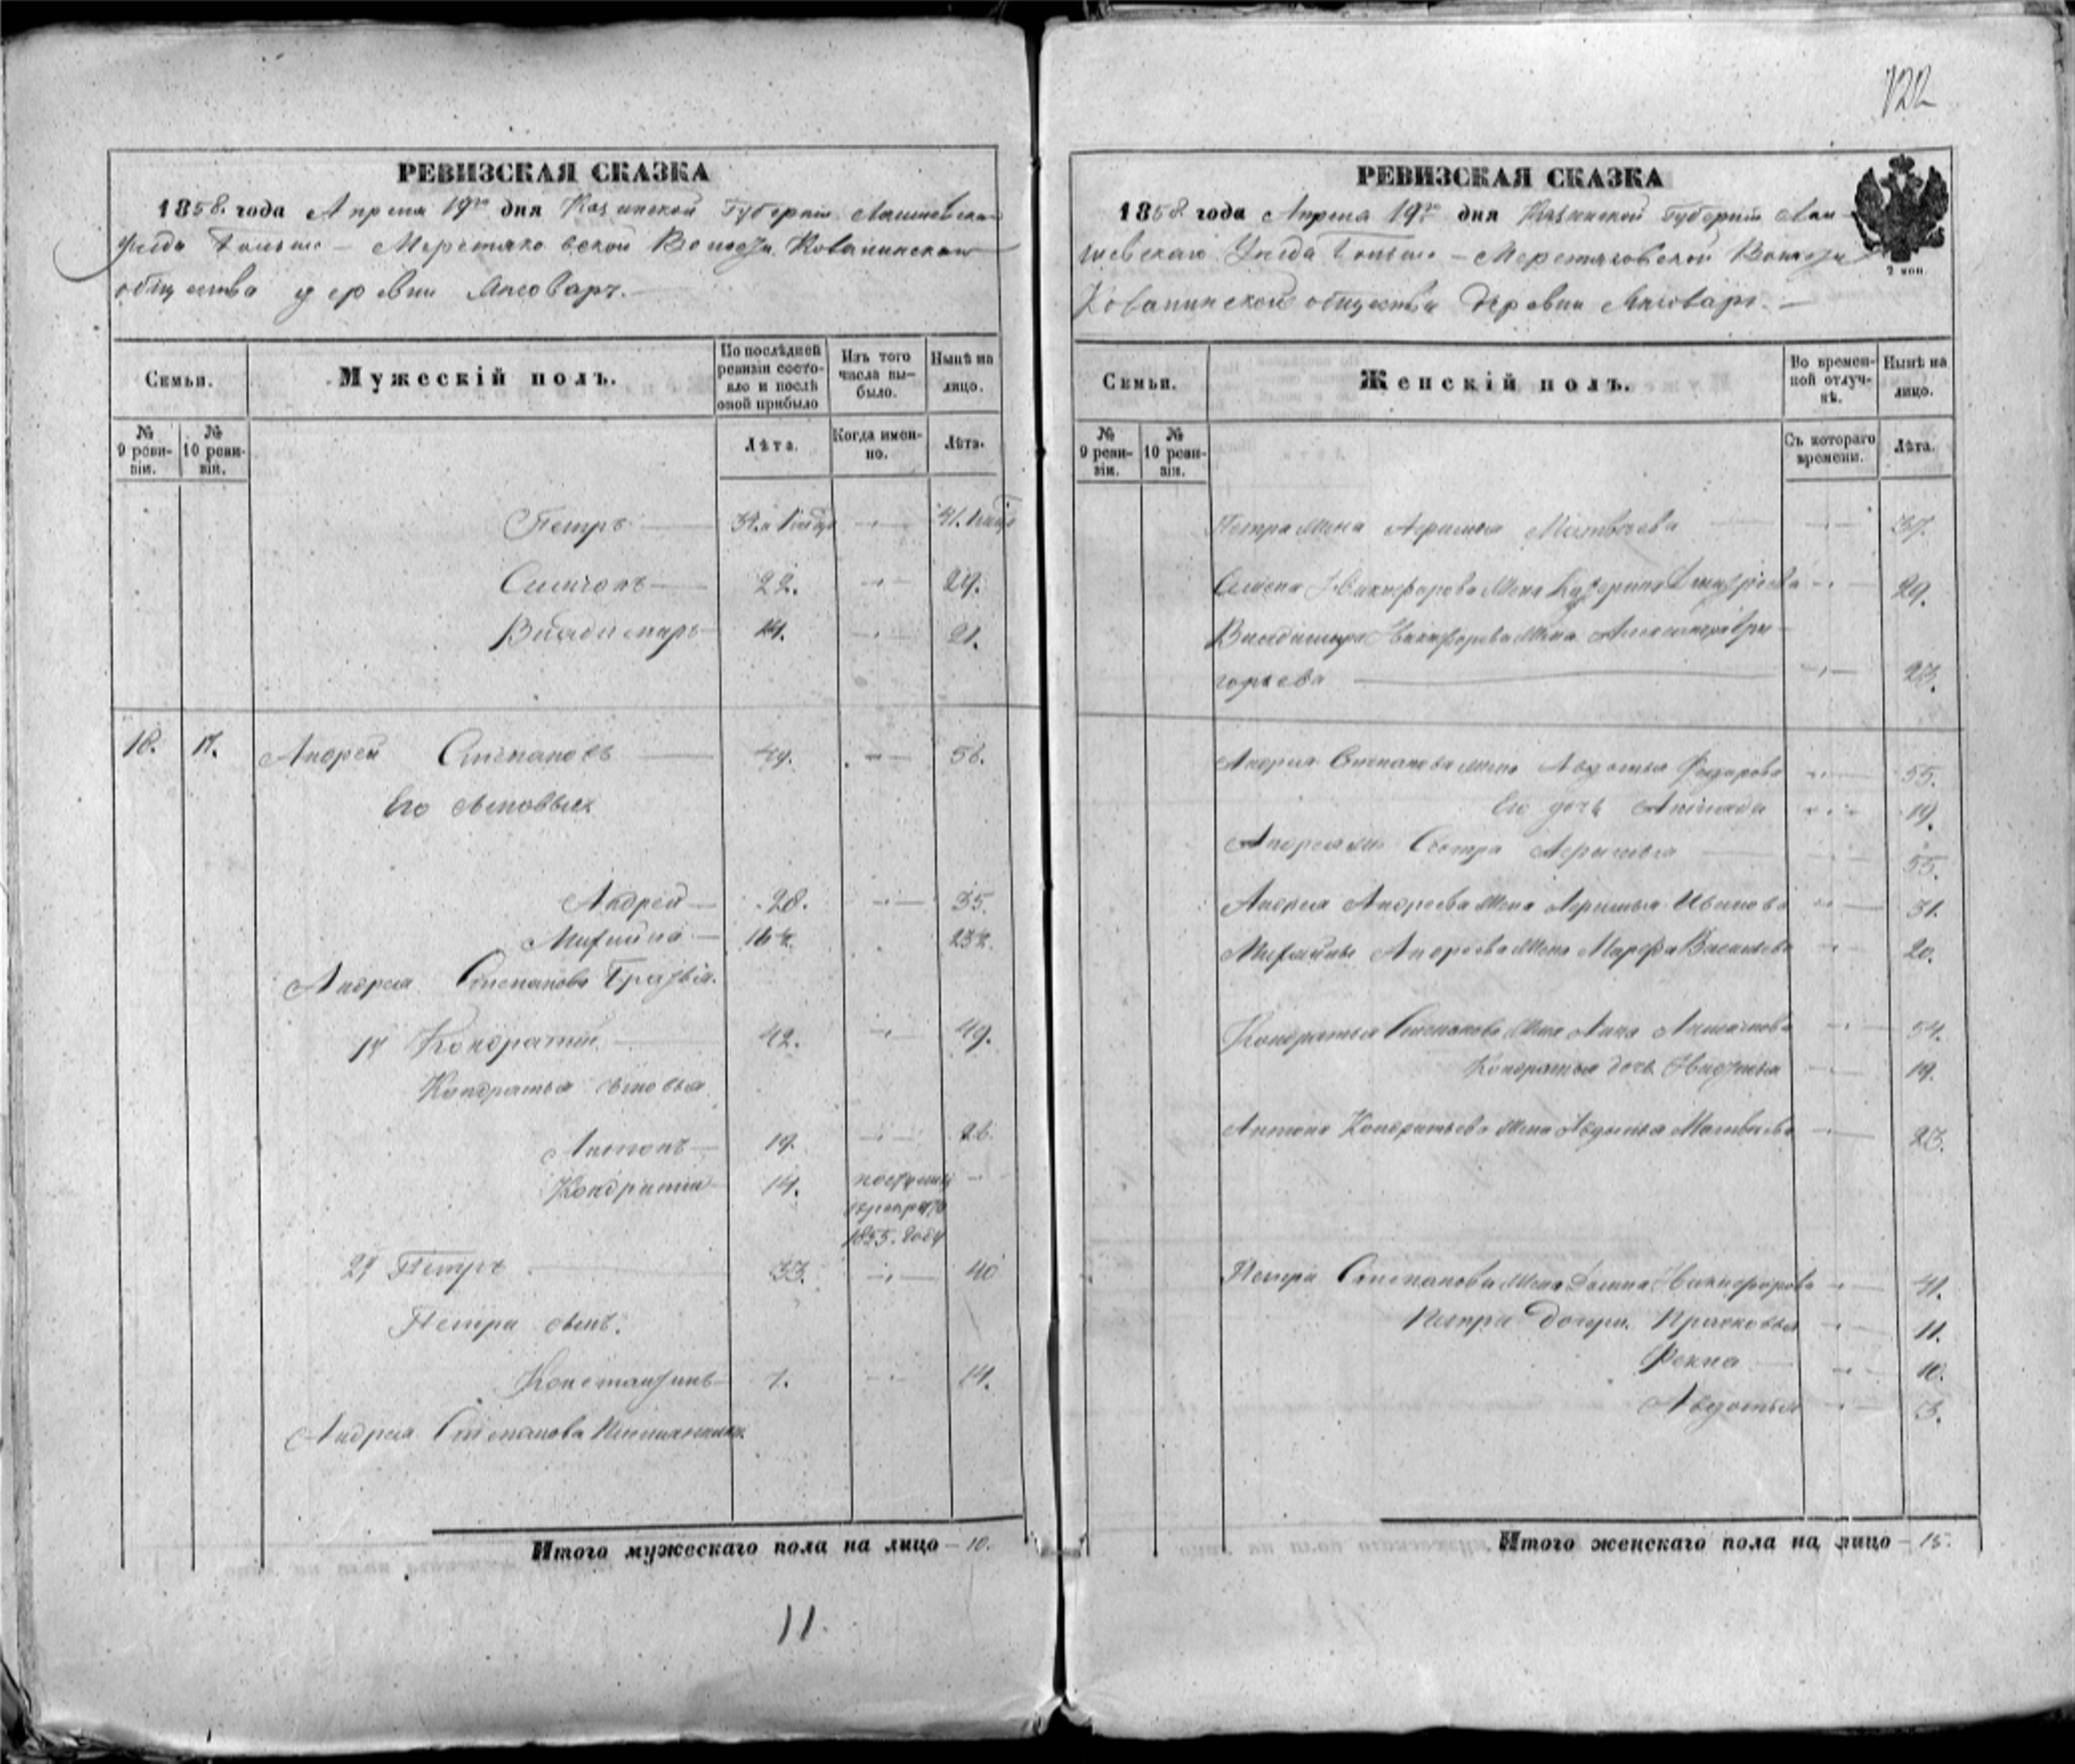 122
РЕВИЗСКАЯ СКАЗКА
1858. года Апреля 19го дня Казанской Губернiи Лаишевскаго
Уезда Больше-Меретяковской Волости Ковалинскаго
общества деревни Янсоваръ.
Семьи.
Мужескiй полъ.
По послѣдней ревизiи состояло и послѣ оной прибыло
Изъ того числа выбыло.
Нынѣ на лицо.
№ 9 ревизiи.
№ 10 ревизiи.
Лѣта.
Когда именно.
Лѣта.
Петръ
Симiонъ 22. 29.
Владимиръ 14. 21.
16. 17. Андрей Степановъ 49. 56.
Его сыновья
Андрей 28. 35.
16 23
Андрея Степанова Братья.
1й Кондратiй 42. 49.
Кондратья сыновья
Антонъ 19. 26.
Кондратiй 14. поступилъ
1855. году
2й Петръ 33. 40
Петра сынъ.
Константинъ 7. 14.
Андрея Степанова Племянники
Итого мужескаго пола на лицо 10.
11
РЕВИЗСКАЯ СКАЗКА
1858 года Апреля 19го дня Казанской Губернiи Лаи-
шевскаго Уезда Больше-Меретяковской Волости
Ковалинскаго общества деревни Янсоваръ.
2 коп
Семьи.
Женскiй полъ.
Во временной отлучкѣ.
Нынѣ на лицо.
№ 9 ревизiи.
№ 10 ревизiи.
Съ котораго времени.
Лѣта.
Петра жена Афимья Матвѣева 37.
Семена Никифорова жена Катерина Дмитрiева 29.
Владимира Никифорова жена Александра Гри-
горьева 23.
Андрея Степанова жена Авдотья Федорова 55.
Его дочь 19.
Андрея Сестра 55.
Андрея Андреева жена Иванова 31.
Андреева жена Марфа Васильева 20.
Кондратья Степанова жена Анна 54.
Кондратья дочь 19.
Антона Кондратьева жена Авдотья Матвѣева 23.
Петра Степанова жена Никифорова 41.
Петра дочери. Прасковья 11.
Фекла 10.
Авдотья 3.
Итого женскаго пола на лицо 15.